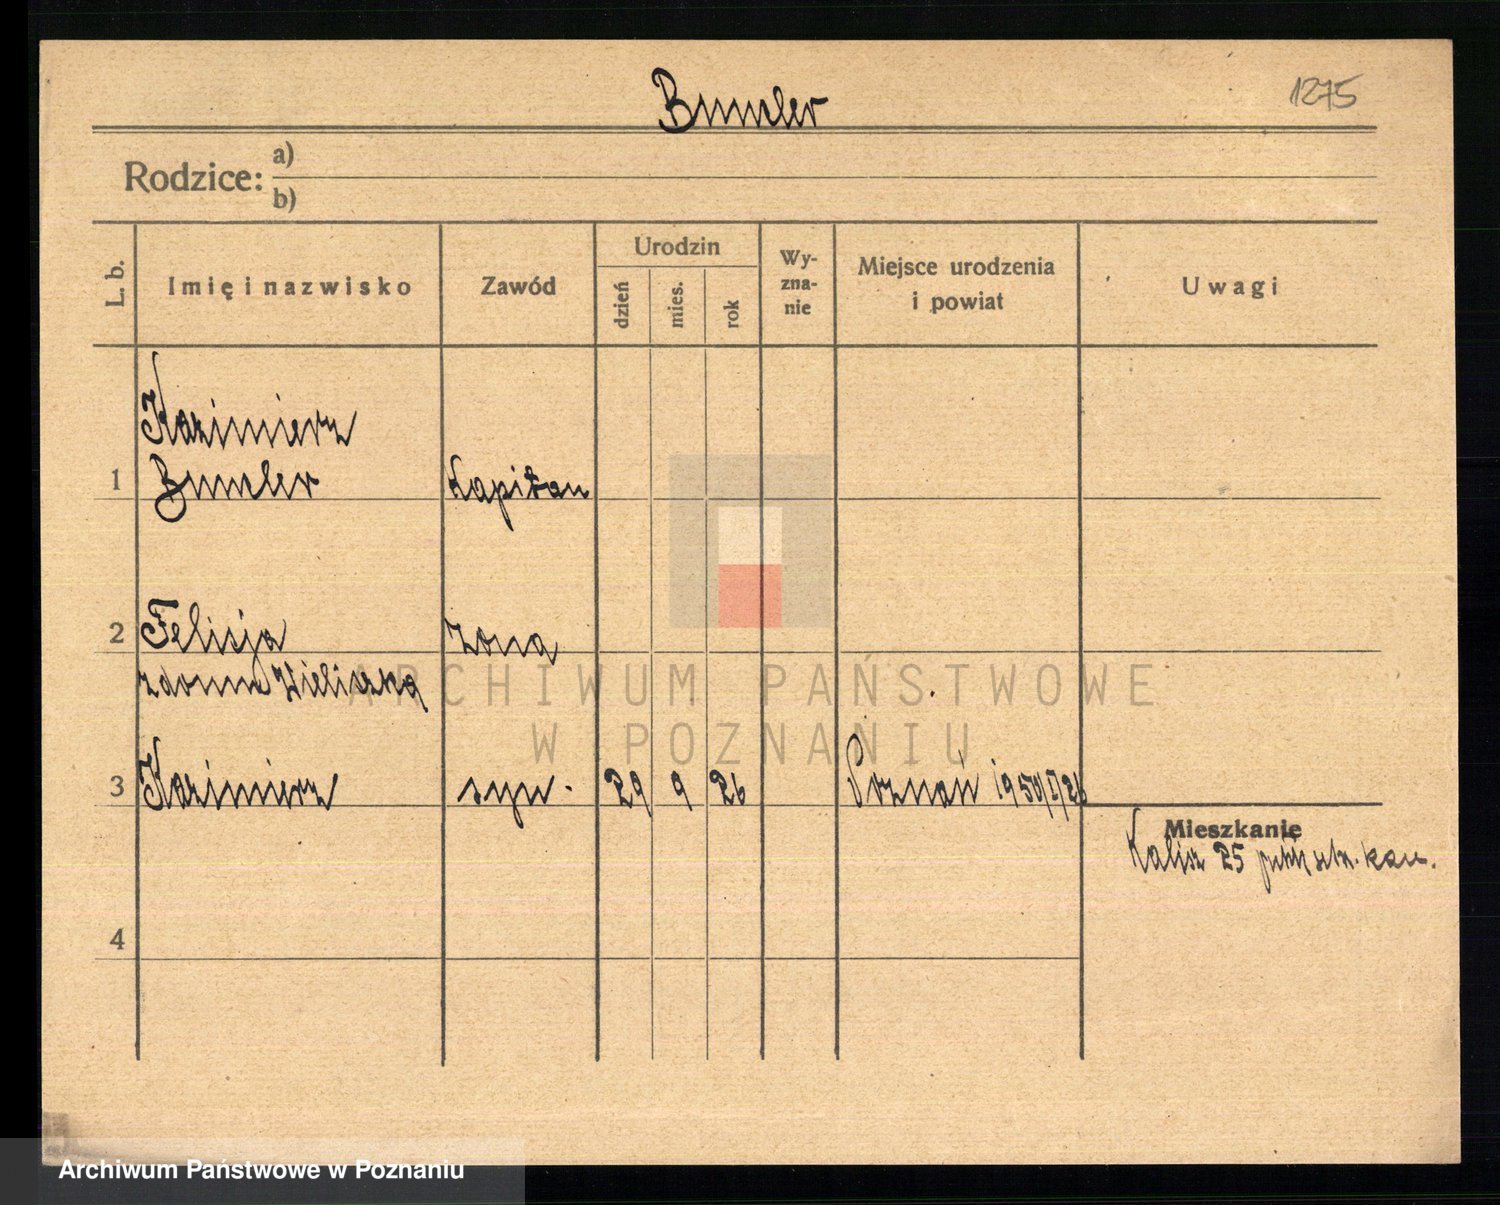 Bumler
1275
Rodzice: a)
b)
L. b.
Imię i nazwisko
Zawód
Urodzin
dzień
mies.
rok
Wy-
zna-
nie
Miejsce urodzenia
i powiat
Uwagi
Kazimierz
1 Bumler Kapitan
2 Felicja żona
zdomu Wieliczka
3 Kazimierz syn. 29 9 26 Poznań 1950/I/26
Mieszkanie
Kalisz 25 kan.
4
ARCHIWUM PAŃSTWOWE
W POZNANIU
Archiwum Państwowe w Poznaniu